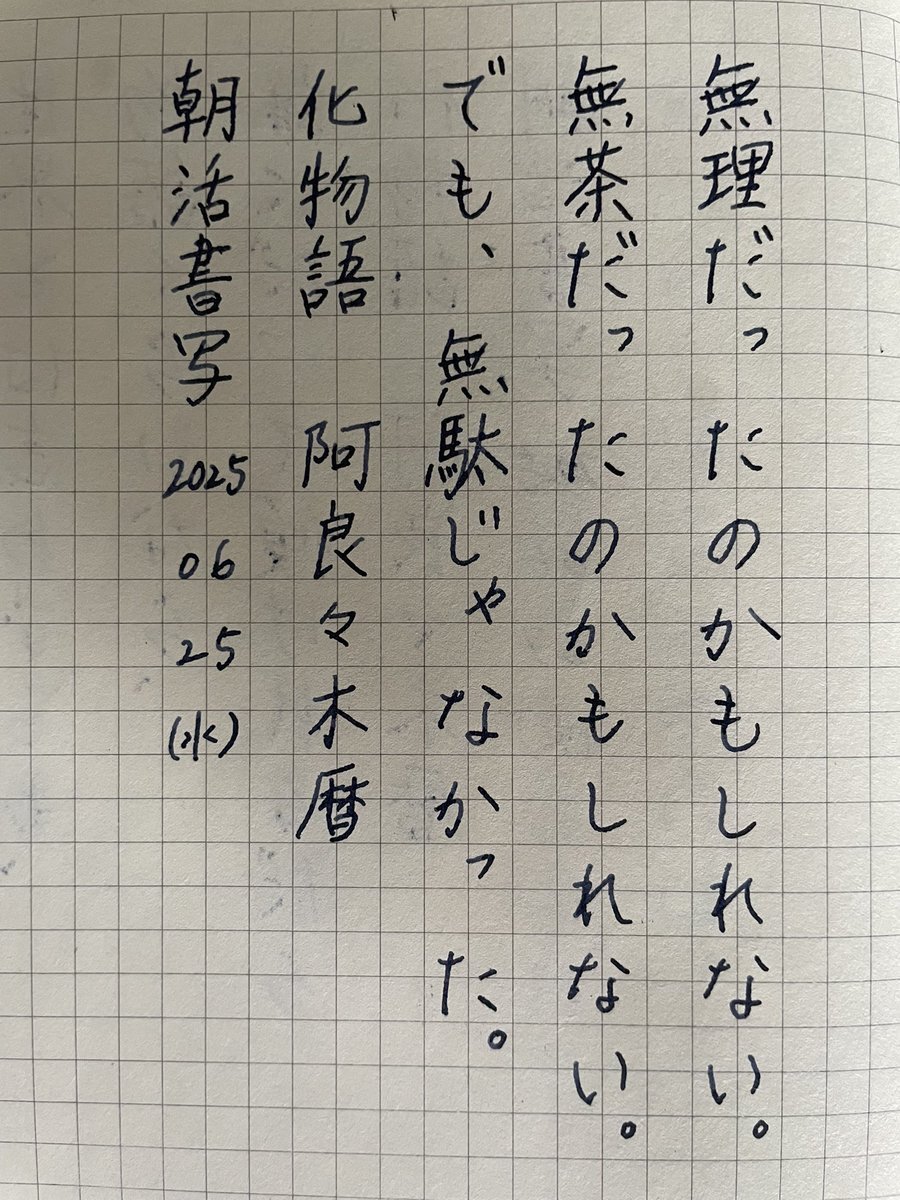 無理だったのかもしれない。
無茶だったのかもしれない。
でも、無駄じゃなかった。
化物語 阿良々木暦
朝活書写 2025 06 25 (水)